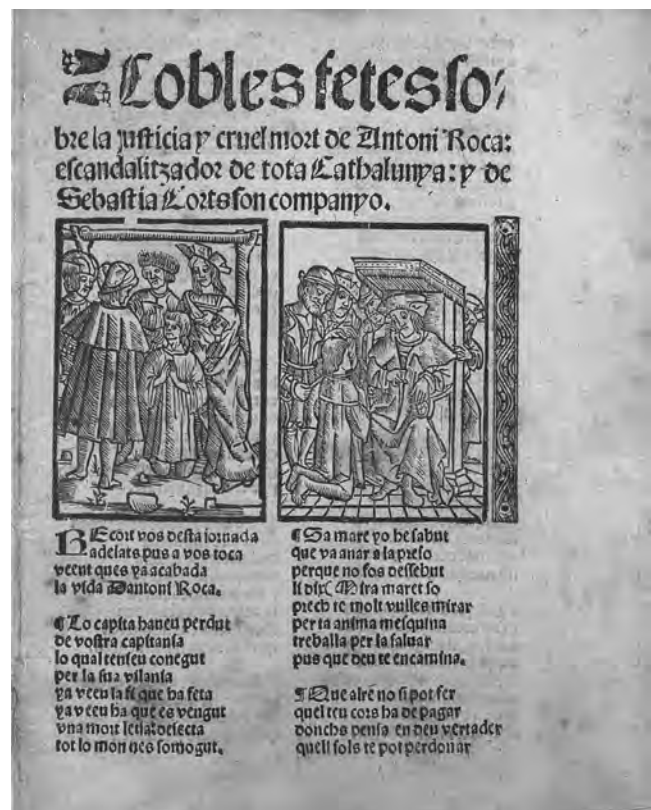 Cobles fetes so⸗
bre la justicia y cruel mort de Antoni Roca:
escandalitzador de tota Cathalunya: y de
Sebastia Corts son companyo.
REcort vos desta jornada
adelats pus a vos toca
veent ques ya acabada
la vida Dantoni Roca.
¶ Lo capita haueu perdut
de vostra capitania
lo qual tenieu conegut
per la sua vilania
ya veeu la fi que ha feta
ya veeu ha que es vengut
vna mort letia: desecta
tot lo mon nes somogut.
¶ Sa mare yo he sabut
que va anar a la preso
perque no fos dessebut
li dix Mira maret so
prech te molt vulles mirar
per ta anima mesquina
treballa per la saluar
pus que deu te encamina.
¶ Que alre no si pot fer
quel teu cors ha de pagar
donchs pensa en deu vertader
quell sols te pot perdonar